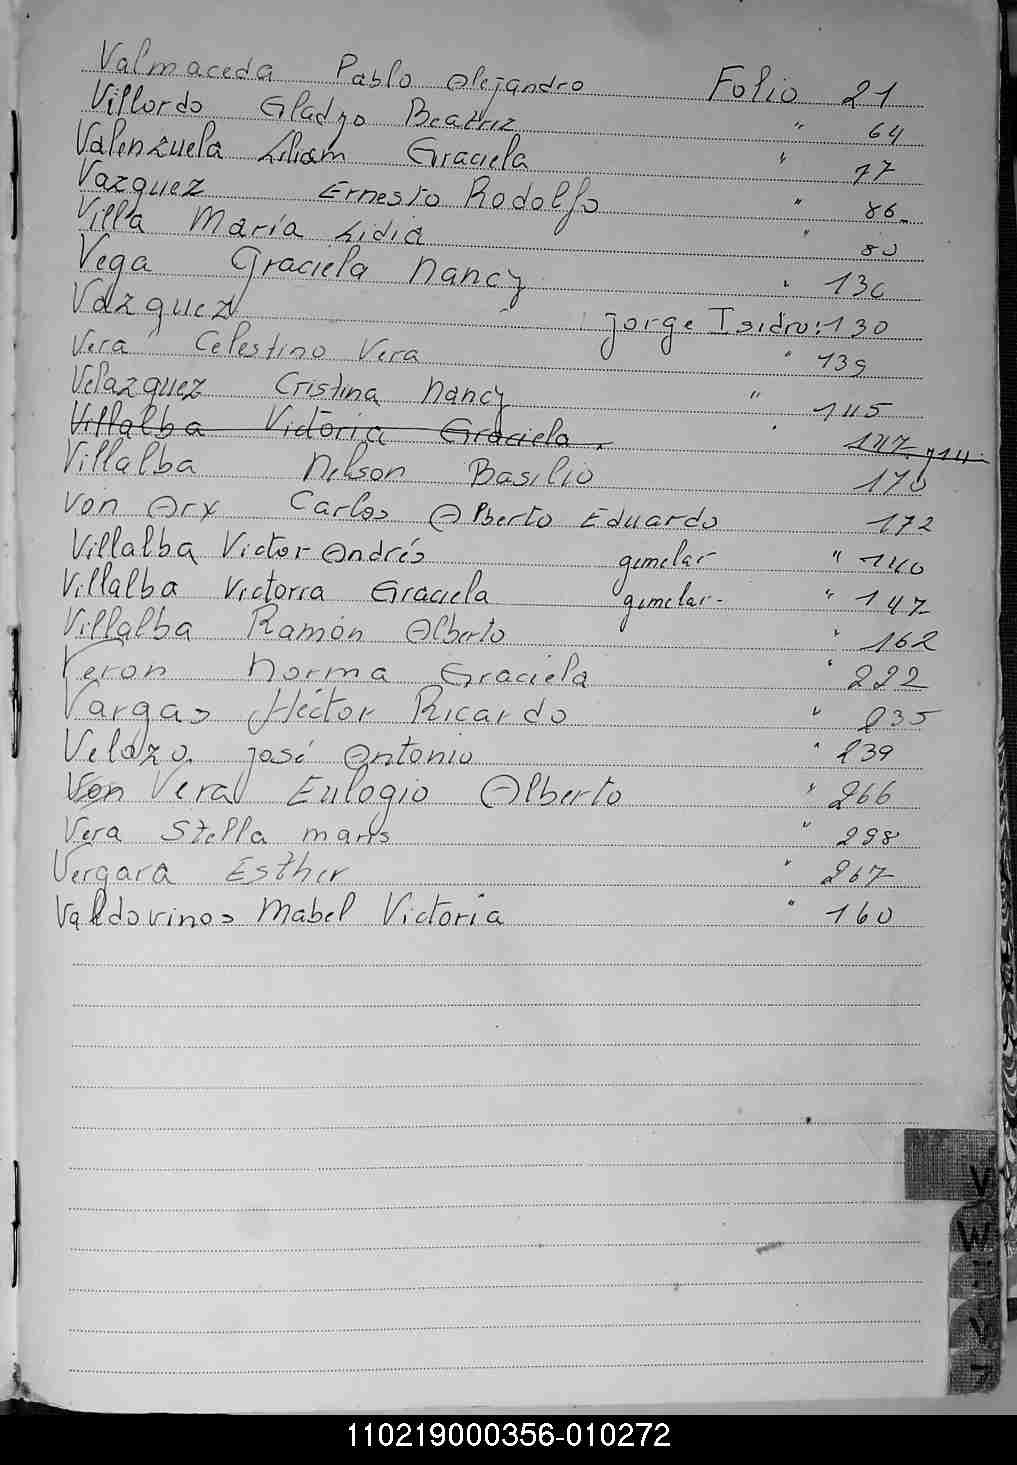 Valmaceda Pablo Alejandro Folio 21
Villordo Gladys Beatriz " 64
Valenzuela Liliam Graciela " 77
Vazquez Ernesto Rodolfo " 86
Villa María Lidia " 80
Vega Graciela Nancy " 130
Vazquez Jorge Isidro: 130
Vera Celestino Vera " 139
Velazquez Cristina Nancy " 145
Villalba Victoria Graciela " 147
Villalba Nelson Basilio 170
Von Arx Carlos Alberto Eduardo 172
Villalba Victor Andrés gemelar " 140
Villalba Victoria Graciela gemelar - " 147
Villalba Ramón Alberto " 162
Veron Norma Graciela " 222
Vargas Héctor Ricardo " 235
Velazo José Antonio " 239
Von Vera Eulogio Alberto " 266
Vera Stella maris " 298
Vergara Esther " 267
Valdovinos Mabel Victoria " 160
V
W
110219000356-010272